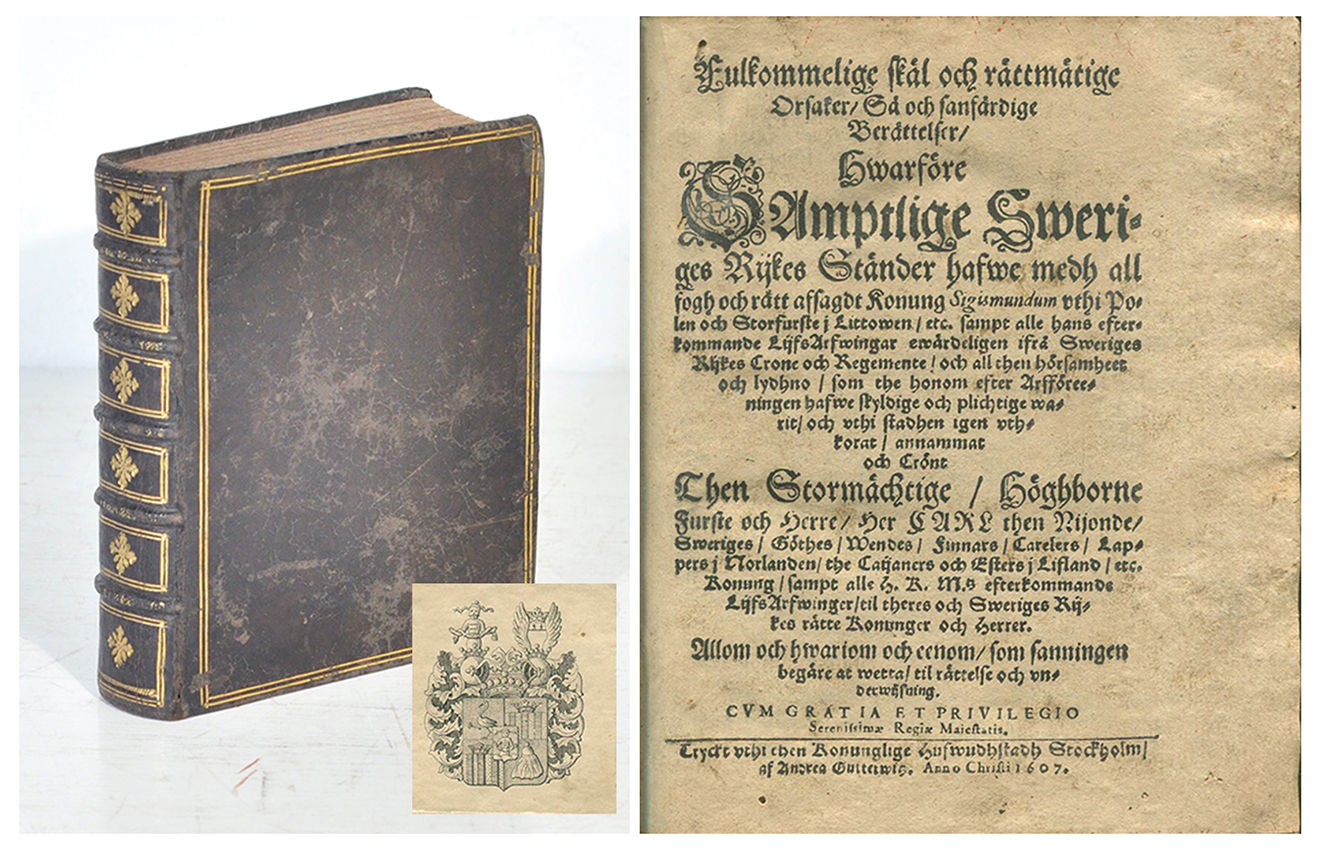 Fulkommelige skäl och rättmätige
Orsaker/ Så och sanfärdige
Berättelser/
Hwarföre
SAmptlige Sweri-
ges Rijkes Ständer hafwe medh all
fogh och rätt affsagdt Konung Sigismundum vthi Po-
len och Storfurste j Littowen/ etc. sampt alle hans efter-
kommande LijfsArfwingar ewärdeligen ifrå Sweriges
Rijkes Crone och Regemente/ och all then hörsamheet
och lydhno/ som the honom efter Arfföree-
ningen hafwe skyldige och plichtige wa-
rit/ och vthi stadhen igen vth-
korat/ annammat
och Crönt
Then Stormächtige/ Höghborne
Furste och Herre/ Her CARL then Nijonde/
Sweriges/ Göthes/ Wendes/ Finnars/ Carelers/ Lap-
pers j Norlanden/ the Caijaners och Esters j Lifland/ etc.
Konung/ sampt alle H. K. M.s efterkommande
LijfsArfwinger/til theres och Sweriges Rij-
kes rätte Konunger och Herrer.
Allom och hwariom och eenom/ som sanningen
begäre at wetta/ til rättelse och vn-
derwijsning.
CVM GRATIA ET PRIVILEGIO
Serenissimæ Regiæ Maiestatis.
Tryckt vthi then Konunglige Hufwudhstadh Stockholm/
af Andrea Gutterwitz. Anno Christi 1607.